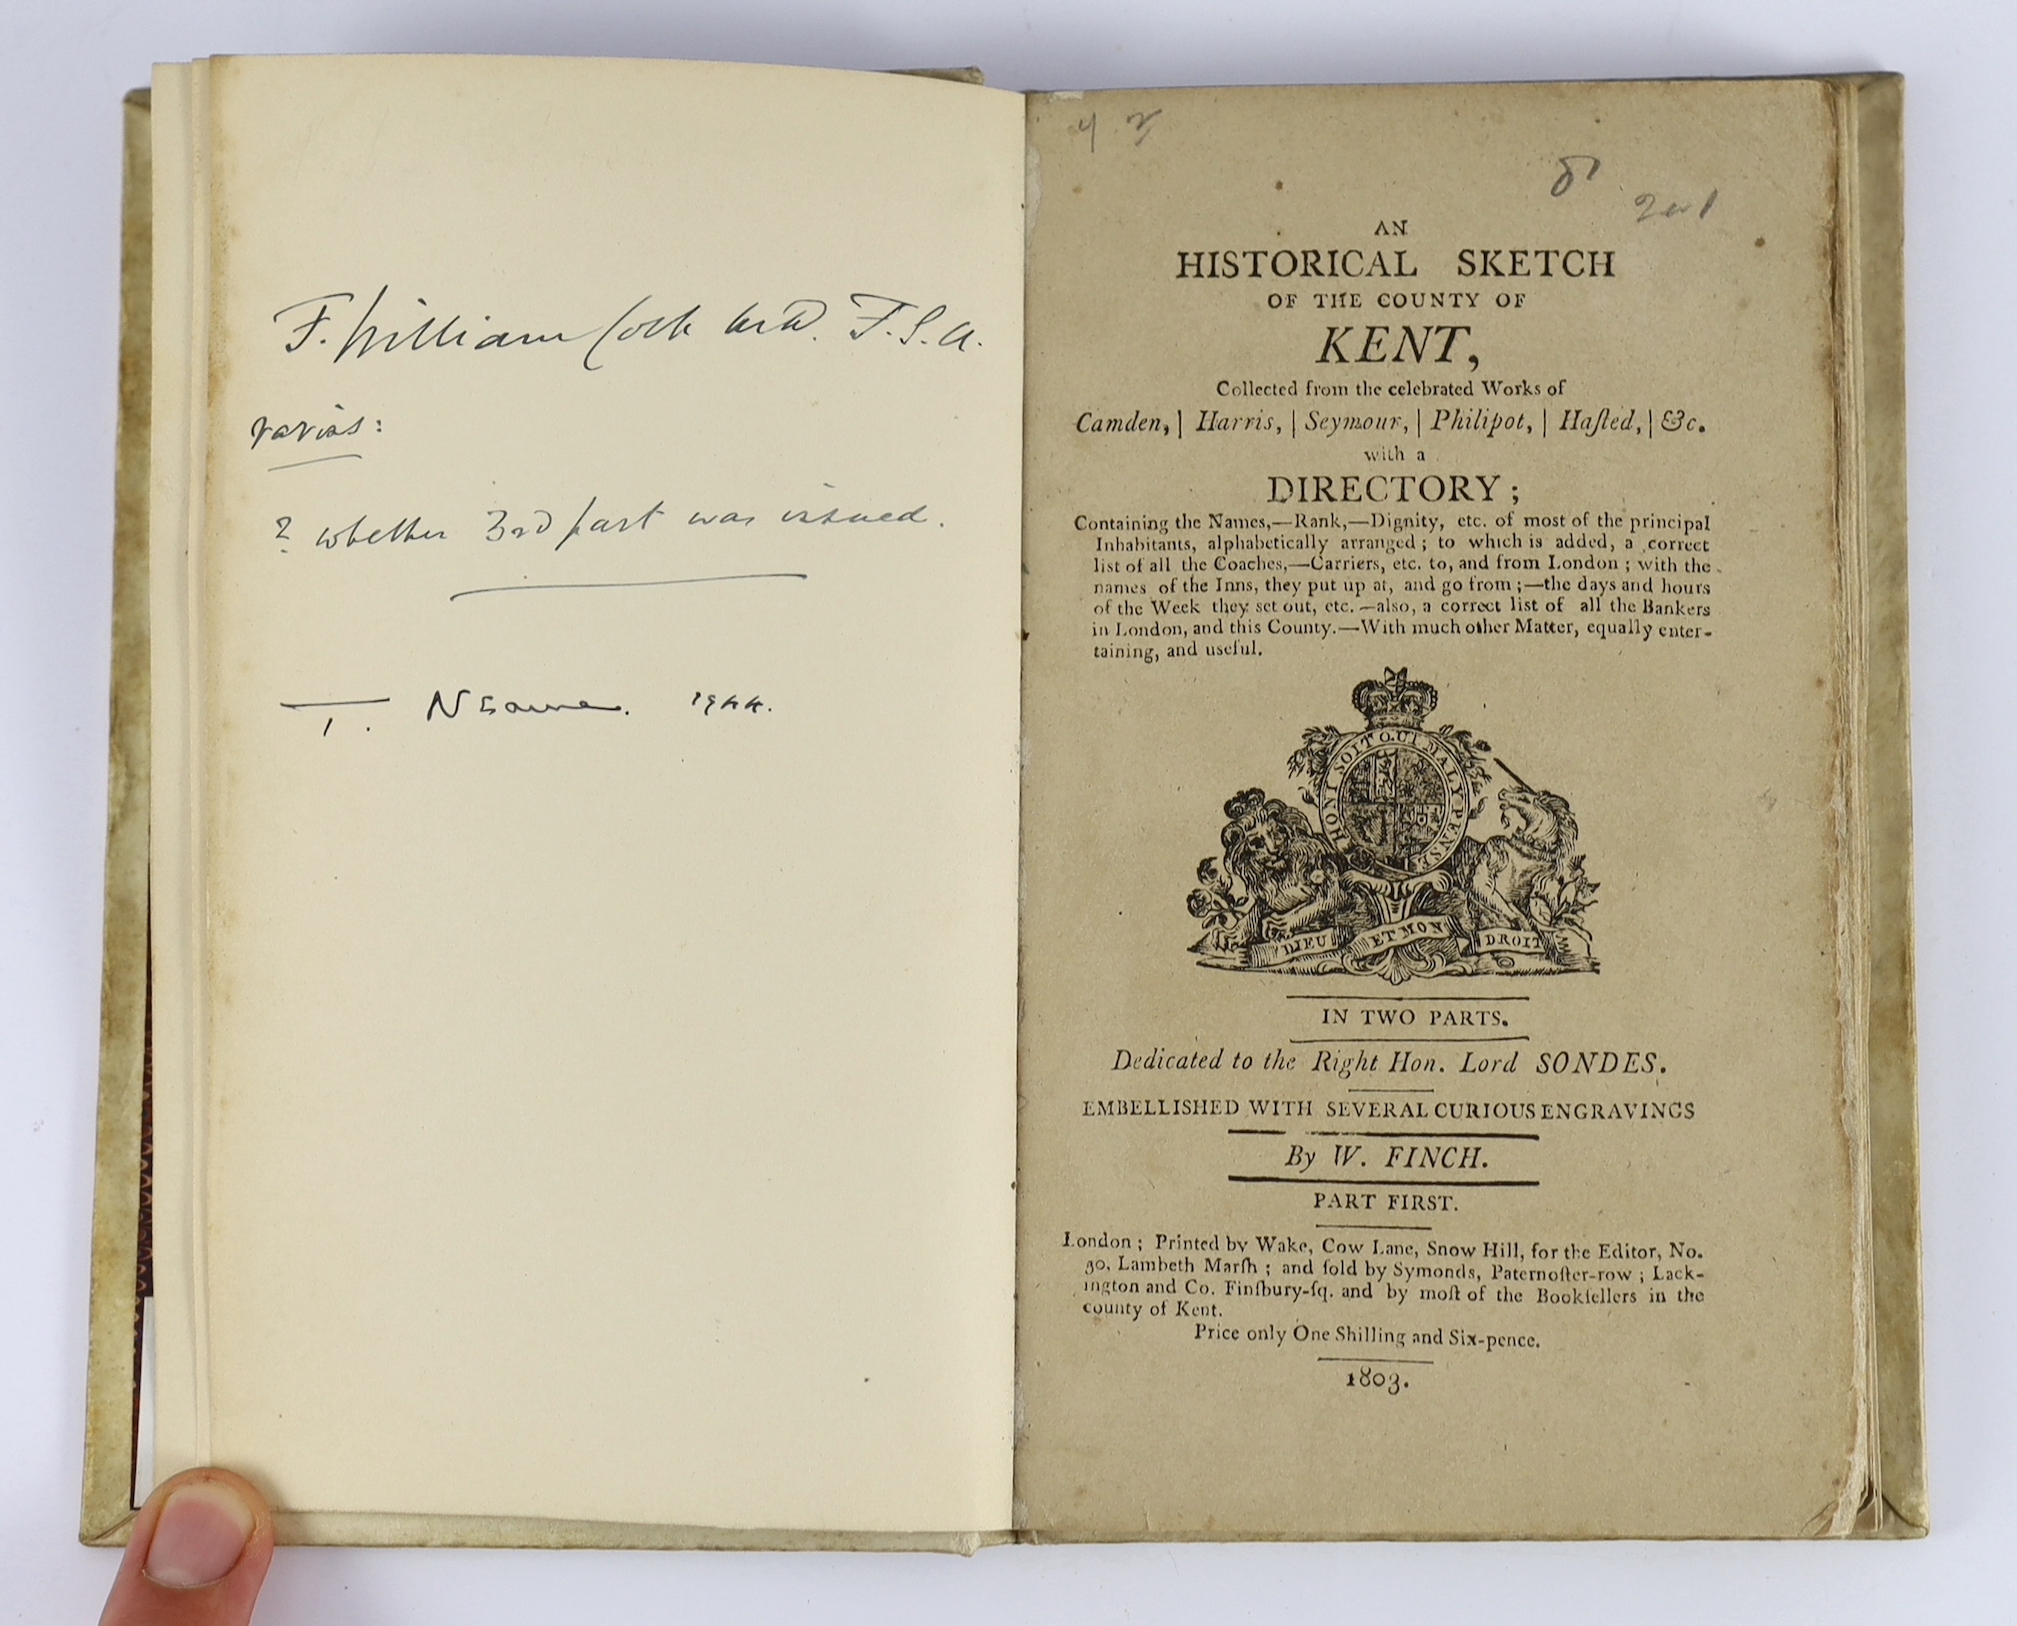 F. William Cock M.D. F.S.A.
rariss:
? whether 3rd part was issued.
1944.
AN
HISTORICAL SKETCH
OF THE COUNTY OF
KENT,
Collected from the celebrated Works of
Camden, | Harris, | Seymour, | Philipot, | Haſted, | &c.
with a
DIRECTORY;
Containing the Names,—Rank,—Dignity, etc. of most of the principal
Inhabitants, alphabetically arranged; to which is added, a correct
list of all the Coaches,—Carriers, etc. to, and from London; with the
names of the Inns, they put up at, and go from;—the days and hours
of the Week they set out, etc.—also, a correct list of all the Bankers
in London, and this County.—With much other Matter, equally enter-
taining, and useful.
HONI SOIT QUI MAL Y PENSE
DIEU ET MON DROIT
IN TWO PARTS.
Dedicated to the Right Hon. Lord SONDES.
EMBELLISHED WITH SEVERAL CURIOUS ENGRAVINGS
By W. FINCH.
PART FIRST.
London; Printed by Wake, Cow Lane, Snow Hill, for the Editor, No.
30, Lambeth Marſh; and ſold by Symonds, Paternoſter-row; Lack-
ington and Co. Finſbury-ſq. and by moſt of the Bookſellers in the
county of Kent.
Price only One Shilling and Six-pence.
1803.